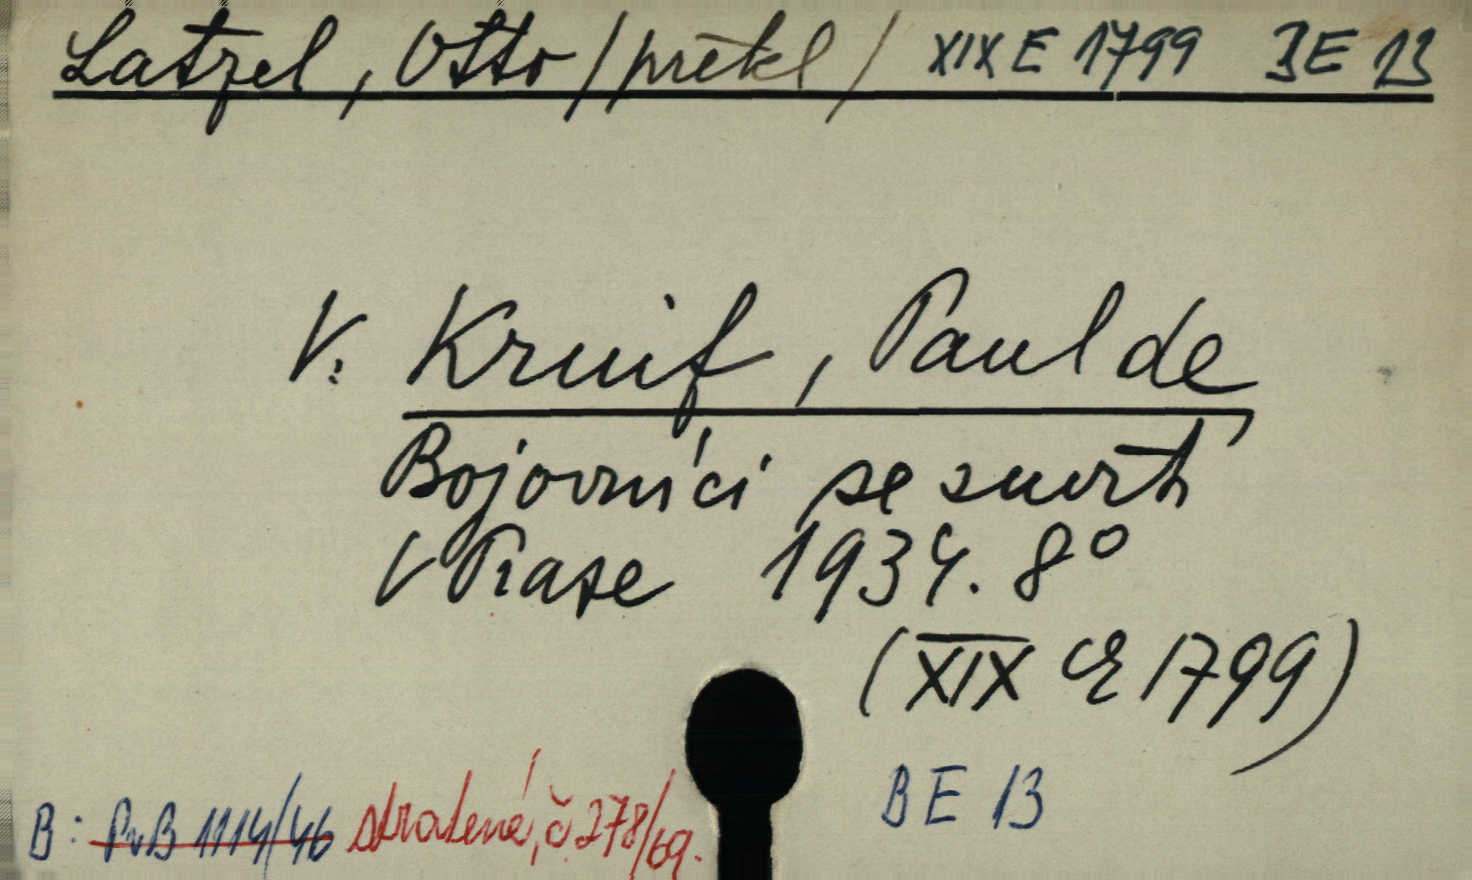 Latzel, Otto /překl/ XIX E 1799 BE 13
V. Kruif, Paul de
Bojovníci se smrtí
V Praze 1934. 8°
(XIX E 1799)
BE 13
B: PvB 1114/46 stratené, č. 278/69.